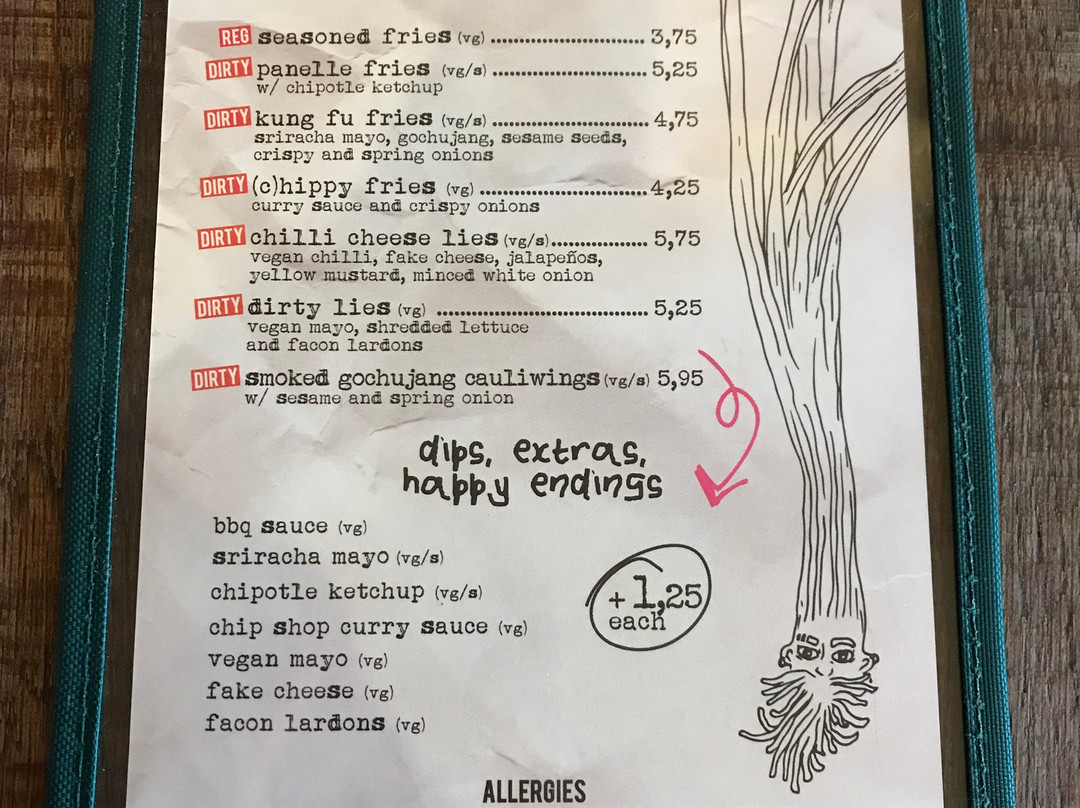 REG seasoned fries (vg) ................................ 3,75
DIRTY panelle fries (vg/s) ................................ 5,25
w/ chipotle ketchup
DIRTY kung fu fries (vg/s) ................................ 4,75
sriracha mayo, gochujang, sesame seeds,
crispy and spring onions
DIRTY (c)hippy fries (vg) ................................ 4,25
curry sauce and crispy onions
DIRTY chilli cheese lies (vg/s) .................... 5,75
vegan chilli, fake cheese, jalapeños,
yellow mustard, minced white onion
DIRTY dirty lies (vg) ............................................ 5,25
vegan mayo, shredded lettuce
and facon lardons
DIRTY smoked gochujang cauliwings (vg/s) 5,95
w/ sesame and spring onion
dips, extras,
happy endings
bbq sauce (vg)
sriracha mayo (vg/s)
chipotle ketchup (vg/s)
chip shop curry sauce (vg)
vegan mayo (vg)
fake cheese (vg)
facon lardons (vg)
+1,25
each
ALLERGIES